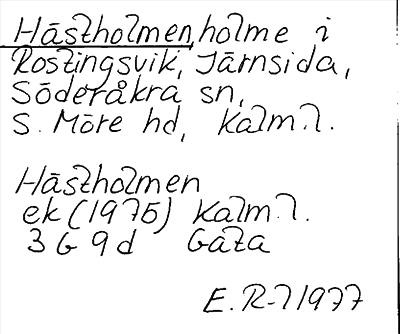 Hästholmen, holme i
Rostingsvik, Järnsida,
Söderåkra sn,
S. Möre hd, Kalm.l.
Hästholmen
ek (1975) Kalm.l.
3 G 9 d Gata
E.R-l 1977